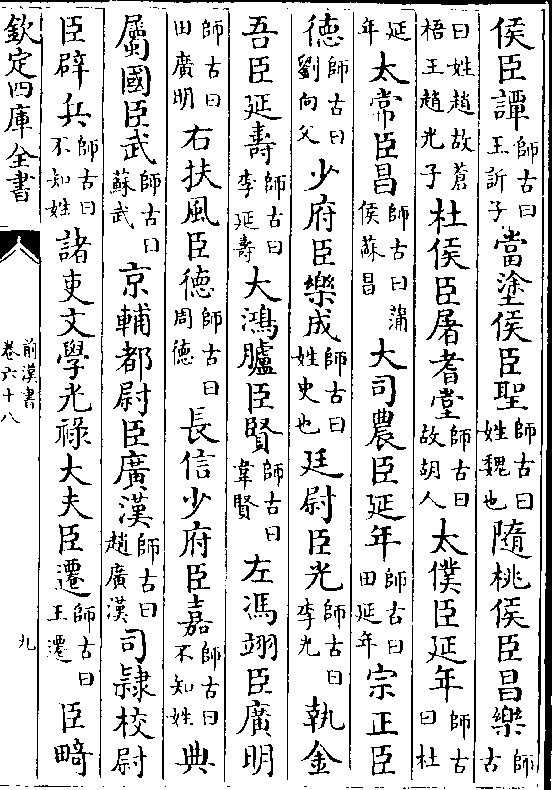 侯臣譚師古曰王訢子當塗侯臣聖師古曰姓魏也隨桃侯臣昌樂師古
曰姓趙故蒼梧王趙光子杜侯臣屠耆堂師古曰故胡人太僕臣延年師古曰杜
延年太常臣昌師古曰蒲侯蘇昌大司農臣延年師古曰田延年宗正臣
德師古曰劉向父少府臣樂成師古曰姓史也廷尉臣光師古曰李光執金
吾臣延壽師古曰李延壽大鴻臚臣賢師古曰韋賢左馮翊臣廣明
師古曰田廣明右扶風臣德師古曰周德長信少府臣嘉師古曰不知姓典
屬國臣武師古曰蘇武京輔都尉臣廣漢師古曰趙廣漢司隸校尉
臣辟兵師古曰不知姓諸吏文學光祿大夫臣遷師古曰王遷臣畸
欽定四庫全書
前漢書
卷六十八
九